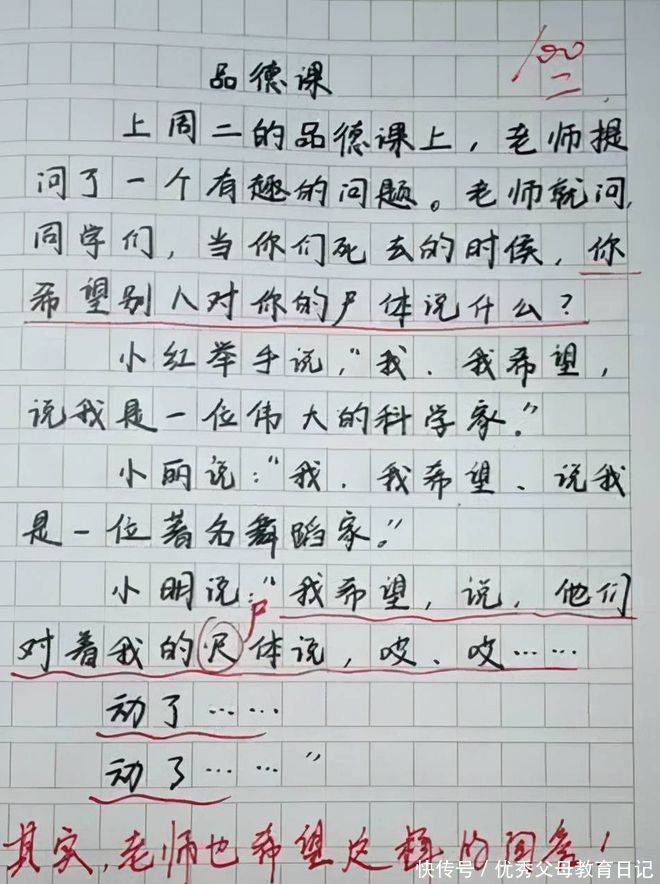 100
品德课
上周二的品德课上，老师提
问了一个有趣的问题。老师就问，
同学们，当你们死去的时候，你
希望别人对你的尸体说什么？
小红举手说，“我．我希望，
说我是一位伟大的科学家．”
小丽说：“我．我希望、说我
是一位著名舞蹈家。”
小明说：“我希望，说，他们
尸
对着我的尺体说，哎、哎……
动了……
动了……”
其实，老师也希望这样的回答！
快传号／优秀父母教育日记